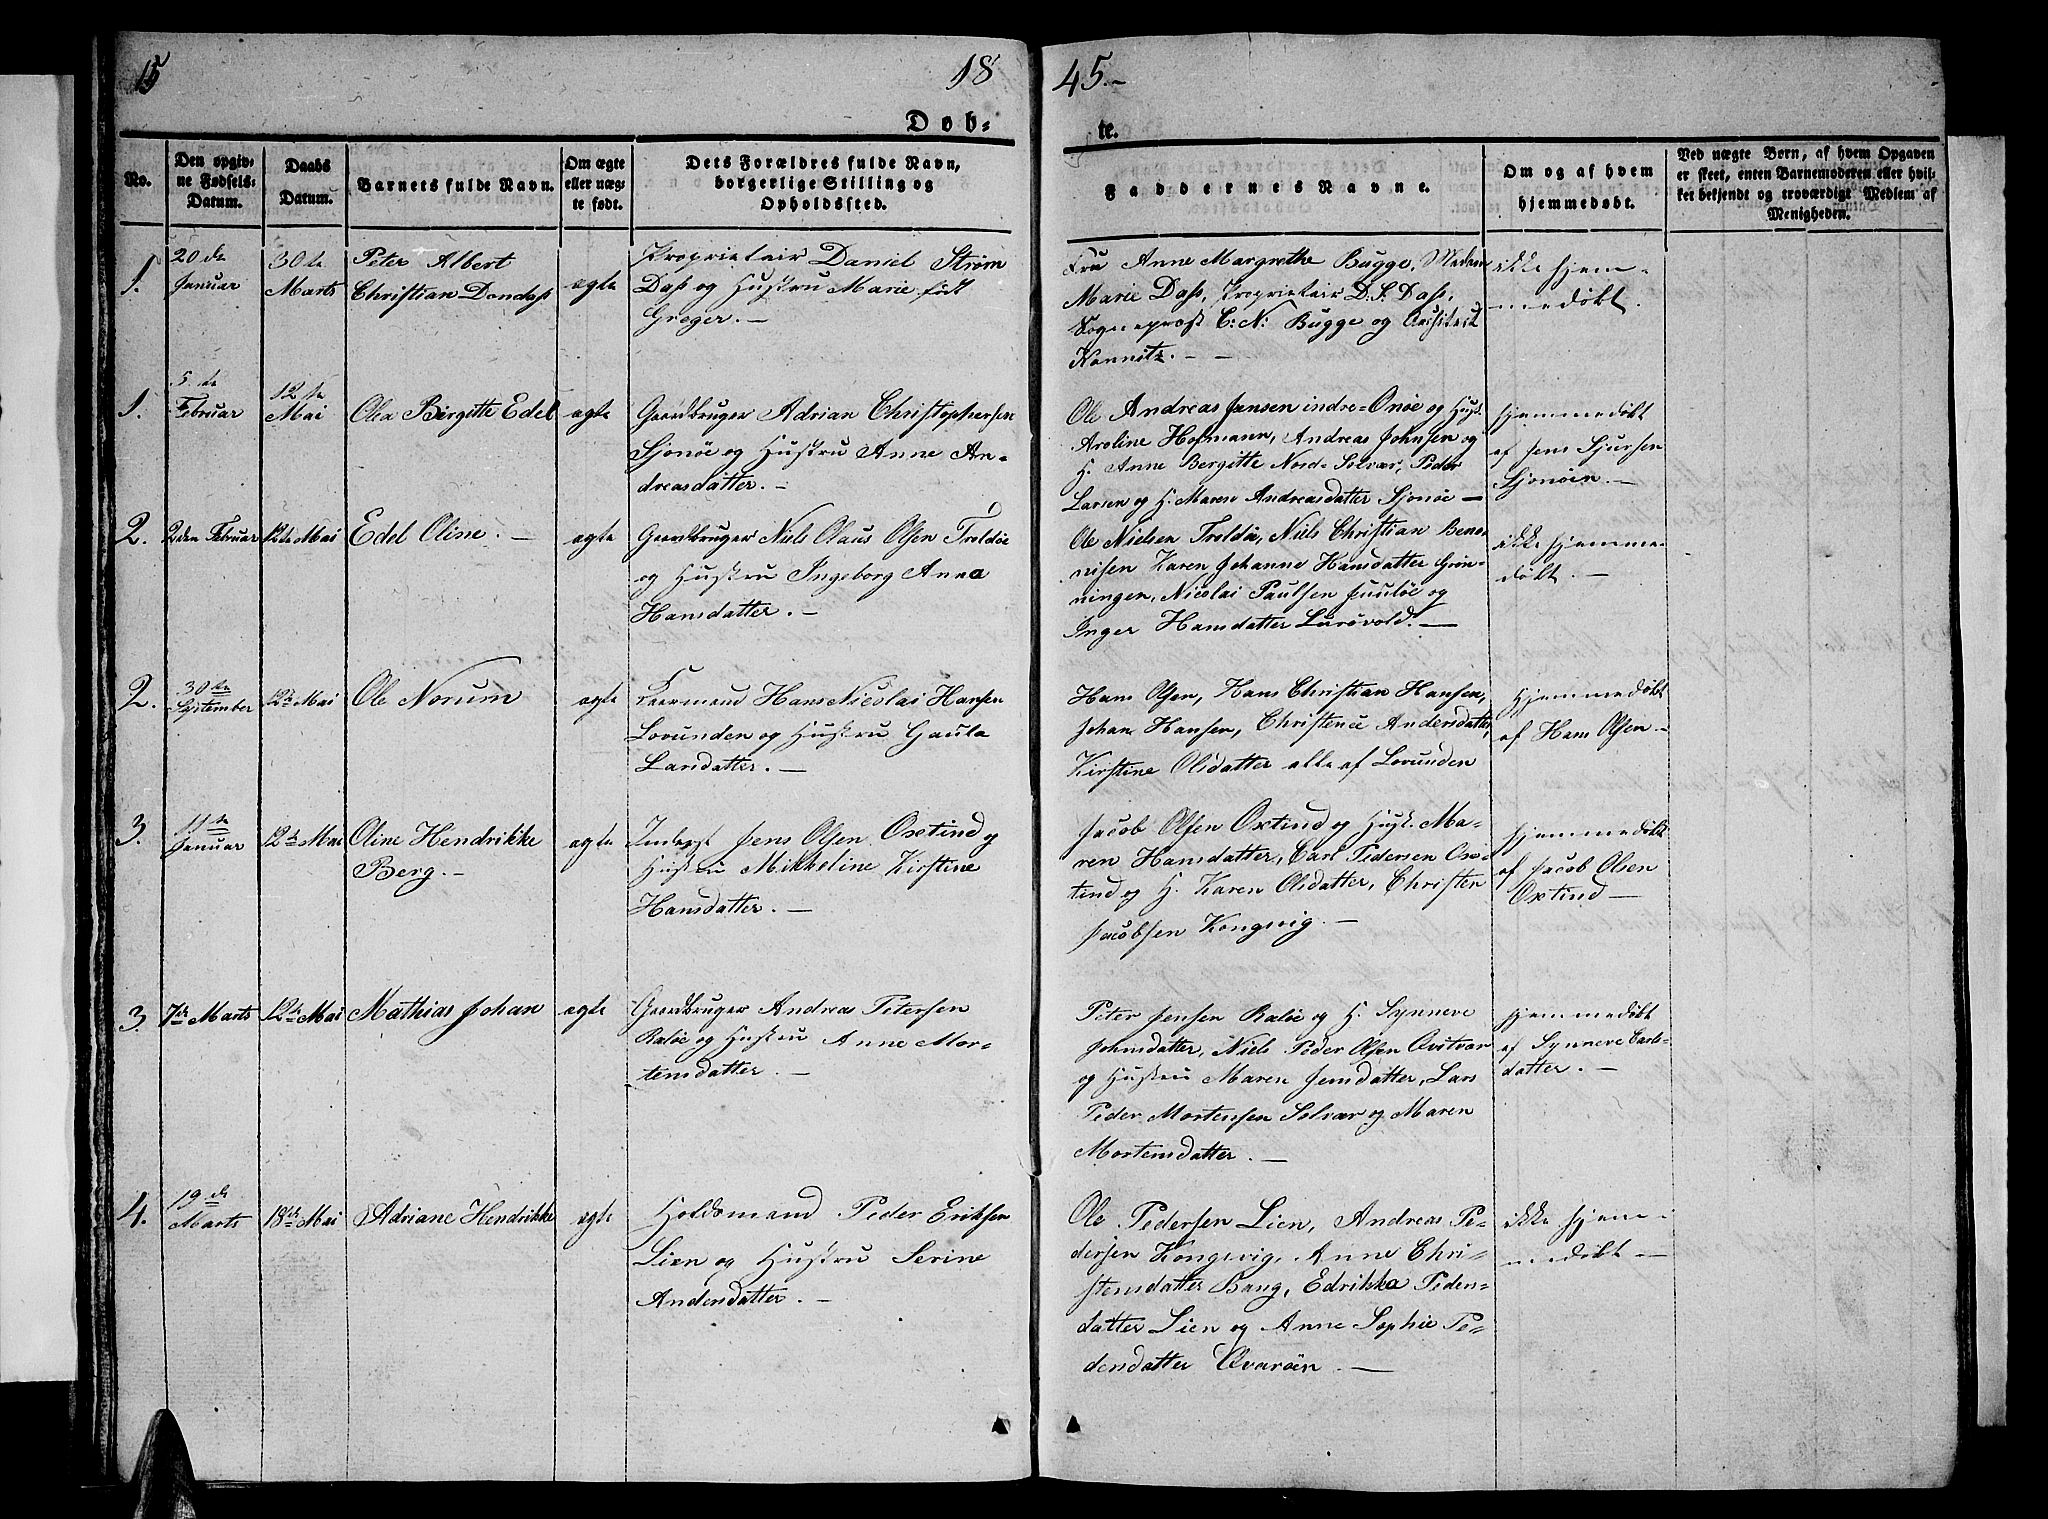 15
18
45.-
Dob-
te.
No.
Den opgiv-
ne Fødsels-
Datum.
Daabs
Datum.
Barnets fulde Navn.
Om ægte
eller uæg-
te født.
Dets Forældres fulde Navn,
borgerlige Stilling og
Opholdssted.
Faddernes Navne.
Om og af hvem
hjemmedøbt.
Ved uægte Børn, af hvem Opgaven
er skeet, enten Barnemoderen eller hvil-
ket bekjendt og troværdigt Medlem af
Menigheden.
1.
20de
Januar
30te
Marts
Peter Albert
Christian Dondass
ægte
Proprietair Daniel Strøm
Dass og Hustru Marie født
Greger. -
Fru Anne Margrethe Bugge, Madam
Marie Dass, Proprietair D. S. Dass,
Sogneprest C: N: Bugge og
ikke hjem-
medøbt.
1.
5te
Februar
12te
Mai
Olea Birgitte Edel
ægte
Gaardbruger Adrian Christophersen
Sjonøe og Hustru Anne An-
dreasdatter. -
Ole Andreas Jansen indre-Onøe og Hust.
Aroline Hofmann, Andreas Johnsen og
H. Anne Bergitte Nord-Solvær, Peder
Larsen og H. Maren Andreasdatter Sjonøe -
hjemmedøbt
af Jens Sjursen
Sjonøen. -
2.
2den Februar
12te Mai
Edel Oline. -
ægte
Gaardbruger Niels Olaus Olsen Troldøe
og Hustru Ingeborg Anna
Hansdatter. -
Ole Nielsen Troldø, Niels Christian Benon-
nisen Karen Johanne Hansdatter Grøn-
ningen, Nicolai Paulsen og
Inger Hansdatter Lurøvold. -
ikke hjemme-
døbt. -
2.
30te
September
12te Mai
Ole Norum
ægte
Kaarmand Hans Nicolai Hansen
Lovunden og Hustru Gaula
Larsdatter. -
Hans Olsen, Hans Christian Hansen,
Johan Hansen, Christence Andersdatter,
Kirstine Olsdatter alle af Lovunden
hjemmedøbt
af Hans Olsen. -
3.
11te
Januar
12te Mai
Oline Hendrikke
Berg. -
ægte
Inderst Jens Olsen Oxtind og
Hustru Mikkeline Kirstine
Hansdatter. -
Jacob Olsen Oxtind og Hust. Ma-
ren Hansdatter, Carl Pedersen Ox-
tind og H. Karen Olsdatter, Christen
Jacobsen Kongsvig. -
hjemmedøbt
af Jacob Olsen
Oxtind -
3.
7de Marts
12te Mai
Mathias Johan
ægte
Gaardbruger Andreas Petersen
Raløe og Hustru Anne Mor-
tensdatter. -
Peter Jensen Raløe og H. Synneve
Johnsdatter, Niels Peder Olsen Qvitvær
og Hustru Maren Jensdatter, Lars
Peder Mortensen Solvær og Maren
Mortensdatter. -
hjemmedøbt
af Synneve Carls-
datter. -
4.
19de
Marts
18de Mai
Adriane Hendrikke
ægte
Holdsmand Peder Eriksen
Lien og Hustru Serine
Andersdatter. -
Ole Pedersen Lien, Andreas Pe-
dersen Kongsvig, Anne Chri-
stensdatter Bang, Edrikka Peders-
datter Lien og Anne Sophie Pe-
dersdatter Qvarøen -
ikke hjem-
medøbt -